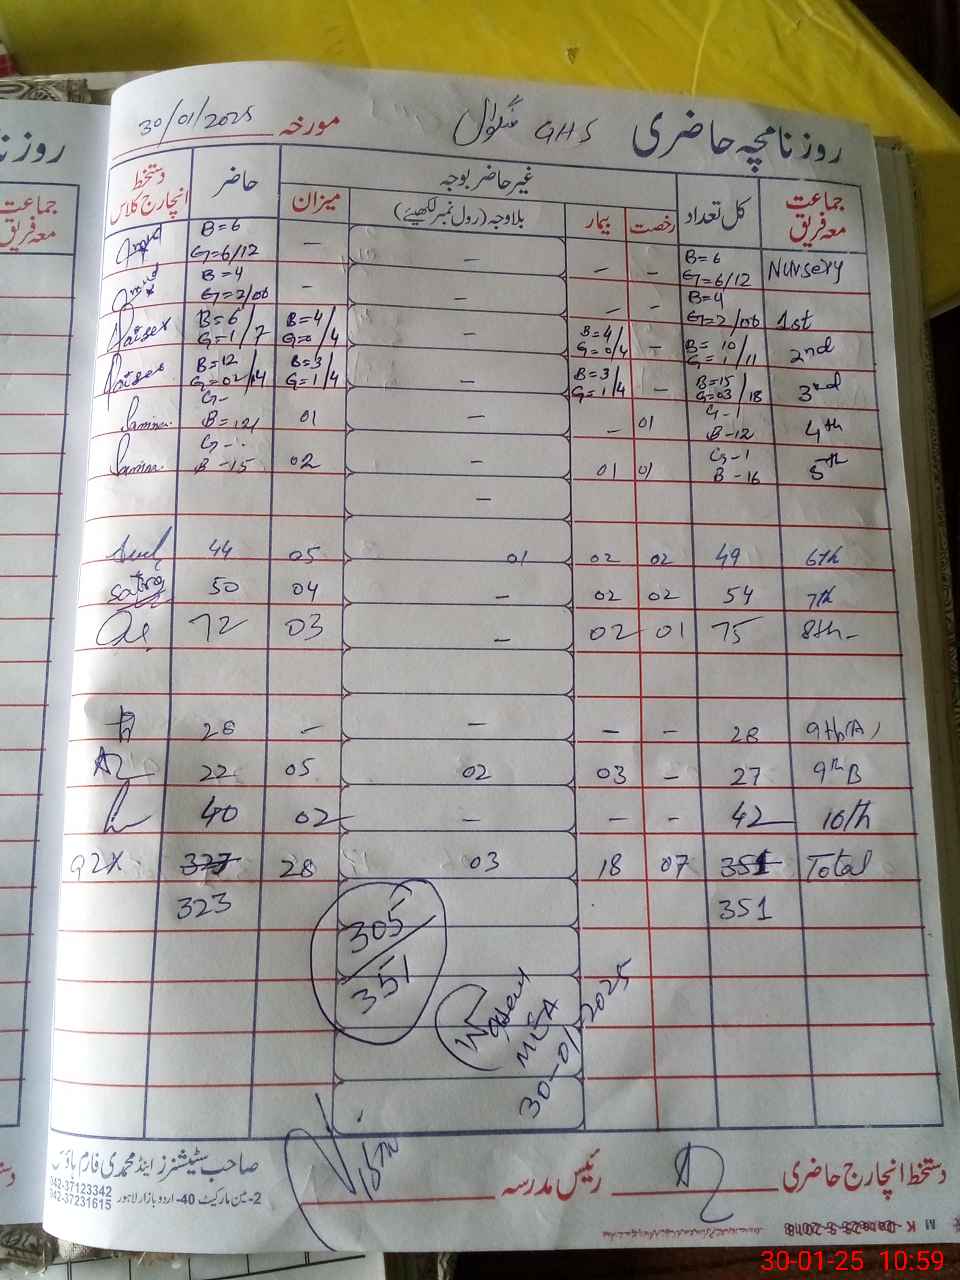 روزنامچہ حاضری GHS منگوال مورخہ 30/01/2025
جماعت معہ فریق
کل تعداد
غیر حاضر بوجہ
رخصت
بیمار
بلاوجہ (رول نمبر لکھیئے)
میزان
حاضر
دستخط انچارج کلاس
Nursery B=6 G=6/12 - - - - B=6 G=6/12
1st B=4 G=2/06 - - - - B=4 G=2/06
2nd B=10 G=1/11 - B=4/ G=0/4 - B=4/ G=0/4 B=6 G=1/7
3rd B=15 G=03/18 - B=3/ G=1/4 - B=3/ G=1/4 B=12 G=02/14
4th G-1 B-12 01 - - 01 G- B=12
5th G-1 B-16 01 01 - 02 G-. B-15
-
6th 49 02 02 01 05 44
7th 54 02 02 - 04 50
8th- 75 01 02 - 03 72
9th(A) 28 - - - - 28
9th B 27 - 03 02 05 22
10th 42 - - - 02 40
Total 351 07 18 03 28 327
351 323
305
351
MEA
30-01-2025
دستخط انچارج حاضری
رئیس مدرسہ
صاحب سٹیشنرز اینڈ محمدی فارم ہاؤس
2-مین مارکیٹ 40-اردو بازار لاہور
042-37123342
042-37231615
جماعت
معہ فریق
30-01-25 10:59